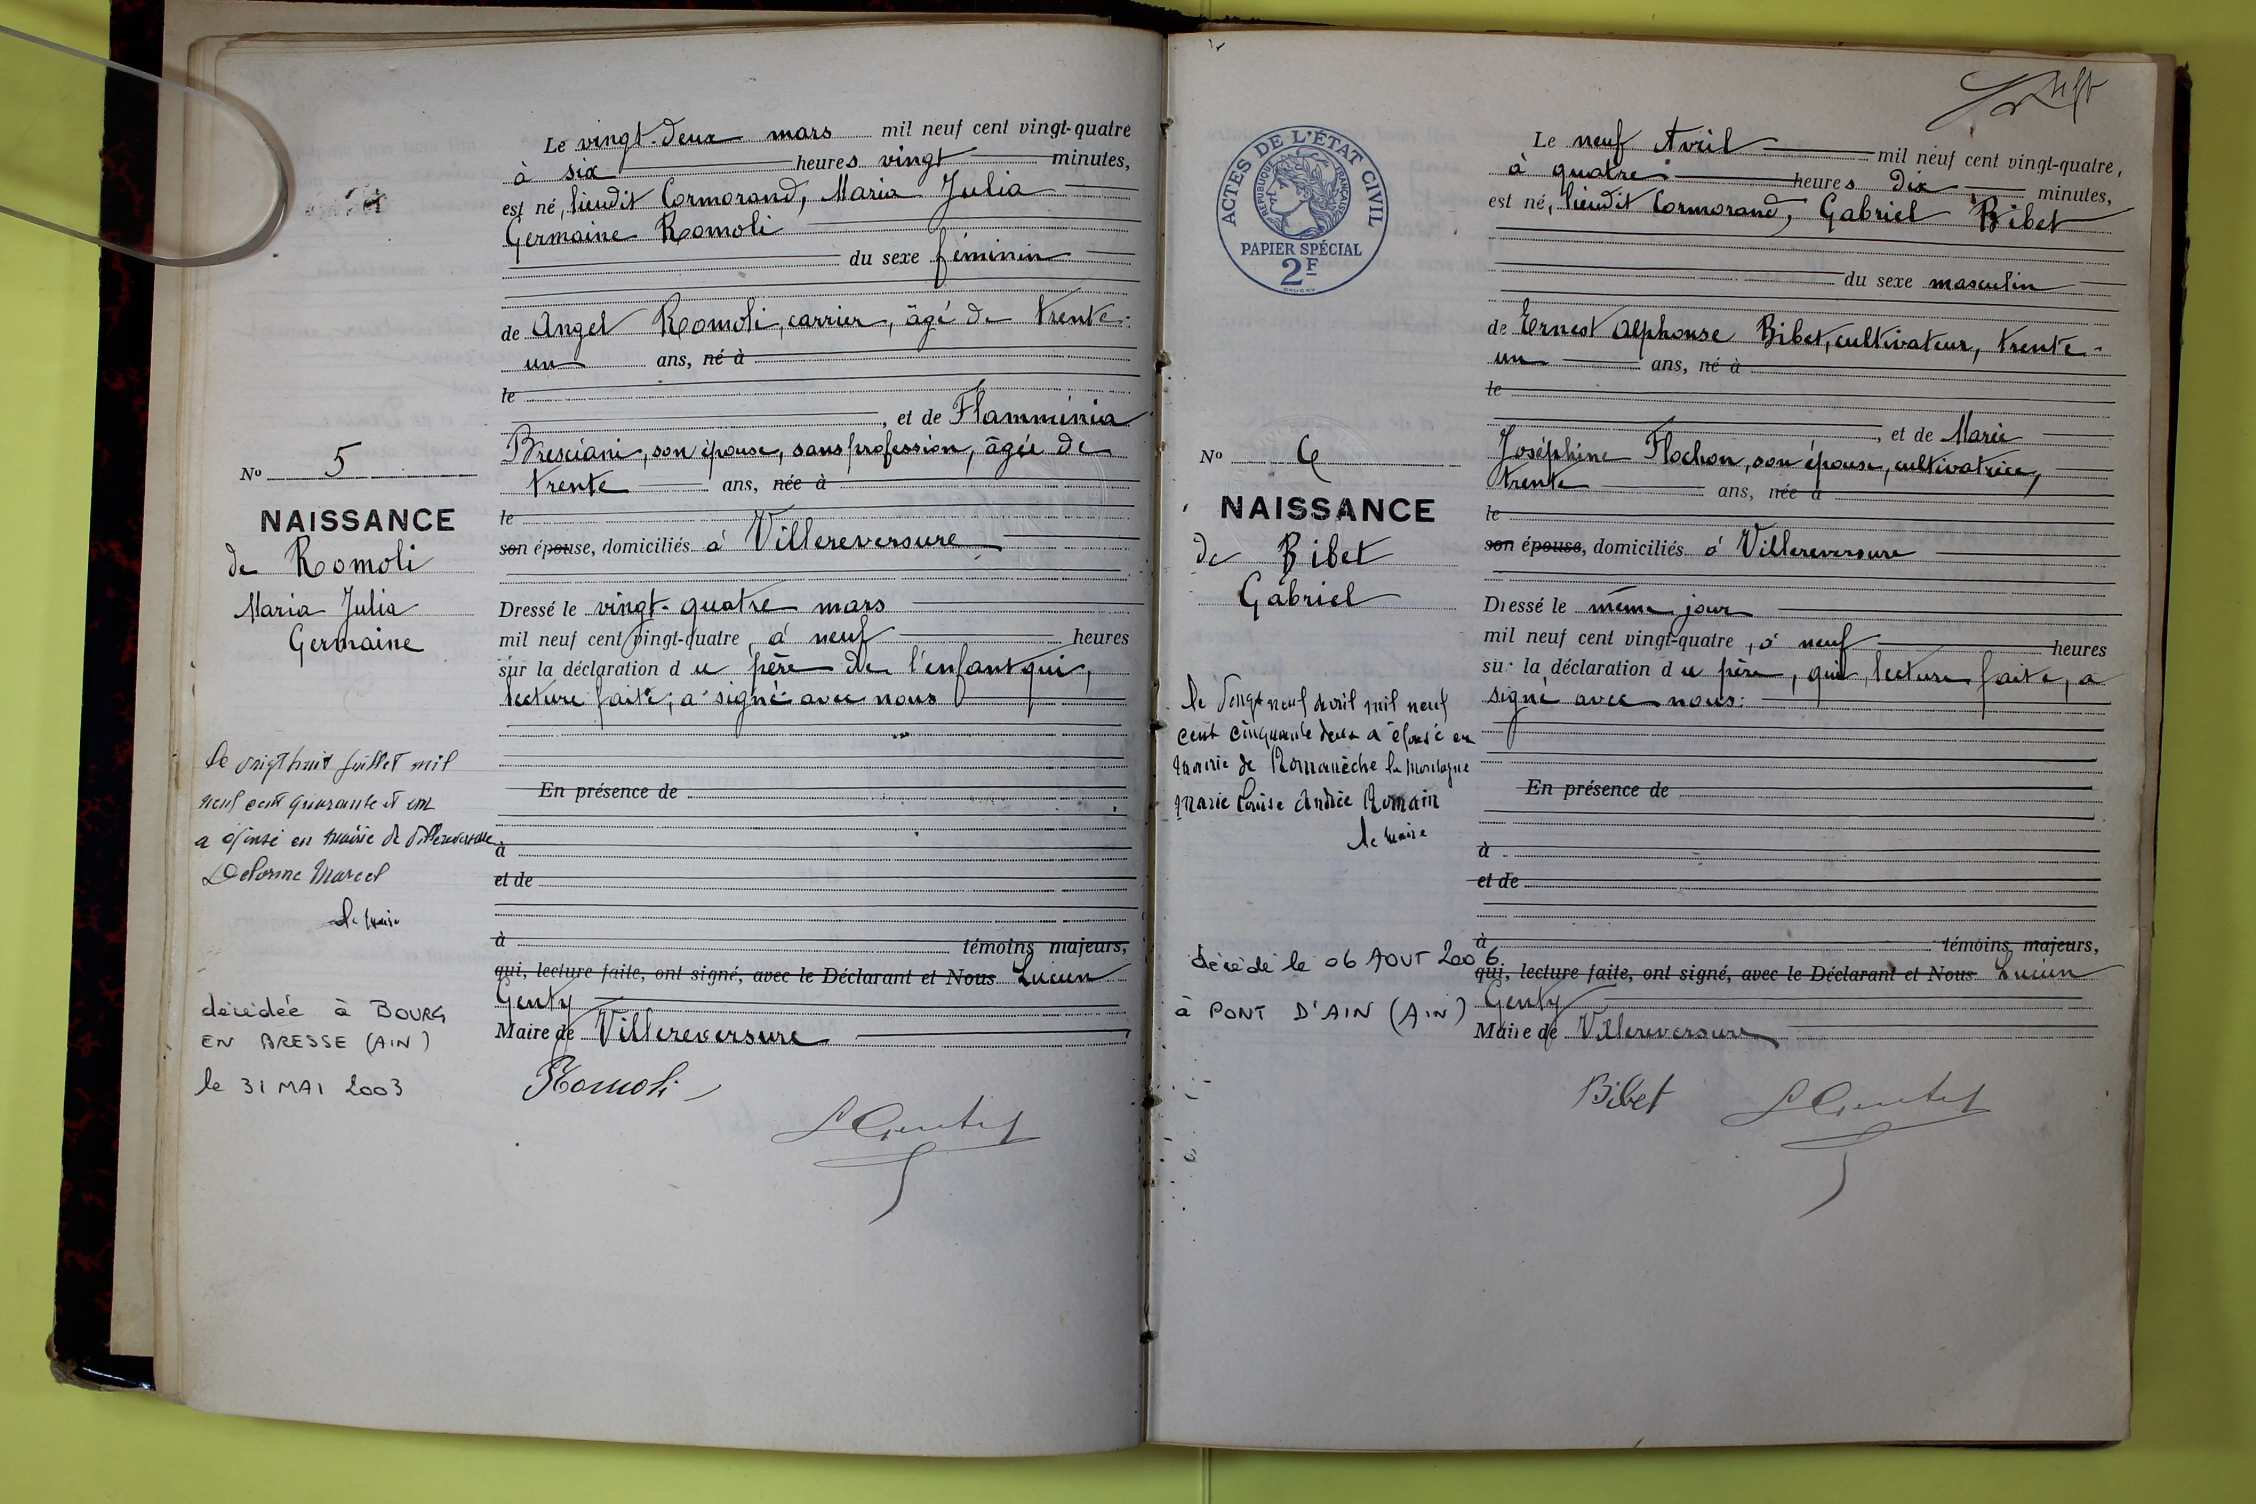 Le vingt-deux mars mil neuf cent vingt-quatre
à six heures vingt minutes,
est né, lieudit Cormorand, Maria Julia
Germaine Romoli
du sexe féminin
de Angel Romoli, carrier, âgé de trente-
un ans, né à
le
, et de Flamminia
Bresciani, son épouse, sans profession, âgée de
trente ans, née à
le
son épouse, domiciliés à Villereversure
Dressé le vingt-quatre mars
mil neuf cent vingt-quatre, à neuf heures
sur la déclaration du père de l'enfant qui,
lecture faite, a signé avec nous
En présence de
à
et de
à témoins majeurs,
qui, lecture faite, ont signé, avec le Déclarant et Nous Lucien
Genty
Maire de Villereversure
Romoli
L Genty
No 5
NAISSANCE
de Romoli
Maria Julia
Germaine
Le vingt huit juillet mil
neuf cent quarante et un
a épousé en mairie de Villereversure
Delorme Marcel
Le Maire
décédée à BOURG
EN BRESSE (AIN)
le 31 MAI 2003
ACTES DE L'ÉTAT CIVIL
RÉPUBLIQUE FRANÇAISE
PAPIER SPÉCIAL
2F
Le neuf Avril mil neuf cent vingt-quatre,
à quatre heures dix minutes,
est né, lieudit Cormorand, Gabriel Bibet
du sexe masculin
de Ernest Alphonse Bibet, cultivateur, trente-
un ans, né à
le
, et de Marie
Joséphine Flochon, son épouse, cultivatrice,
trente ans, née à
le
son épouse, domiciliés à Villereversure
Dressé le même jour
mil neuf cent vingt-quatre, à neuf heures
sur la déclaration du père, qui, lecture faite, a
signé avec nous.
En présence de
à
et de
à témoins majeurs,
qui, lecture faite, ont signé, avec le Déclarant et Nous Lucien
Genty
Maire de Villereversure
Bibet
L Genty
No 6
NAISSANCE
de Bibet
Gabriel
Le vingt neuf avril mil neuf
cent cinquante deux a épousé en
mairie de Romanèche la Montagne
Marie Louise Andrée Romain
Le Maire
décédé le 06 AOUT 2006
à PONT D'AIN (AIN)